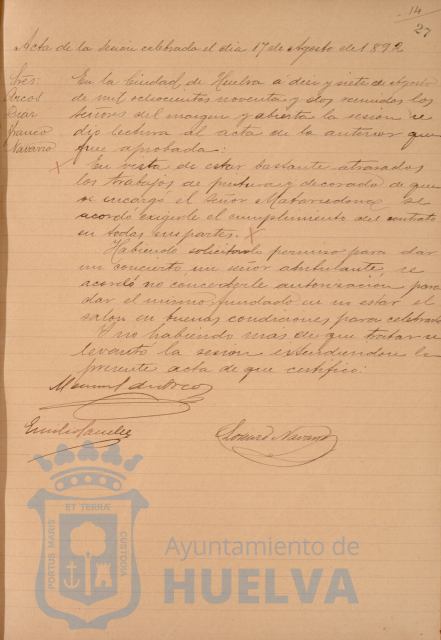 14
27
Acta de la sesion celebrada el dia 17 de Agosto de 1892
Sres:
Arcos
Diaz
Franco
Navarro
En la Ciudad de Huelva á diez y siete de Agosto
de mil ochocientos noventa y dos reunidos los
señores del margen y abierta la sesion se
dió lectura al acta de la anterior que
fue aprobada:
En vista de estar bastante atrasados
los trabajos de pintura y decorado de que
se encargó el Señor Matarredona se
acordó exigirle el cumplimiento del contrato
en todas sus partes.
Habiendo solicitado permiso para dar
un concierto un señor ambulante, se
acordó no concederle autorizacion para
dar el mismo, fundado en no estar el
salon en buenas condiciones para celebrarlo
Y no habiendo mas de que tratar se
levantó la sesion estendiendose la
presente acta de que certifico:
Manuel de Arcos
Emilio
Navarro
PORTUS MARIS
ET TERRÆ
CUSTODIA
Ayuntamiento de
HUELVA